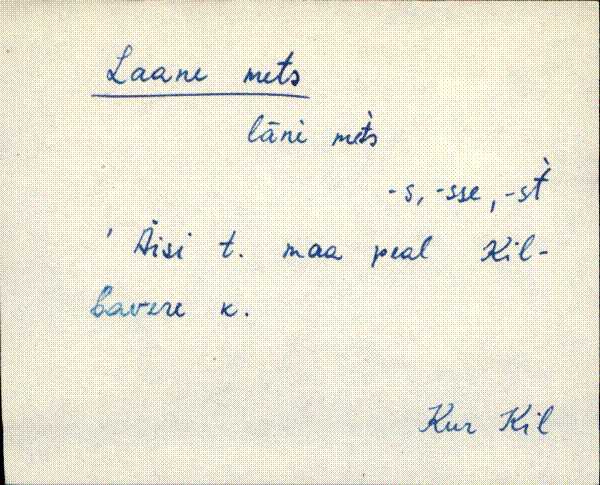 Laane mets
lāni mèts
-s, -sse, -st̀
' Äisi t. maa peal Kil-
bavere k.
Kur Kil